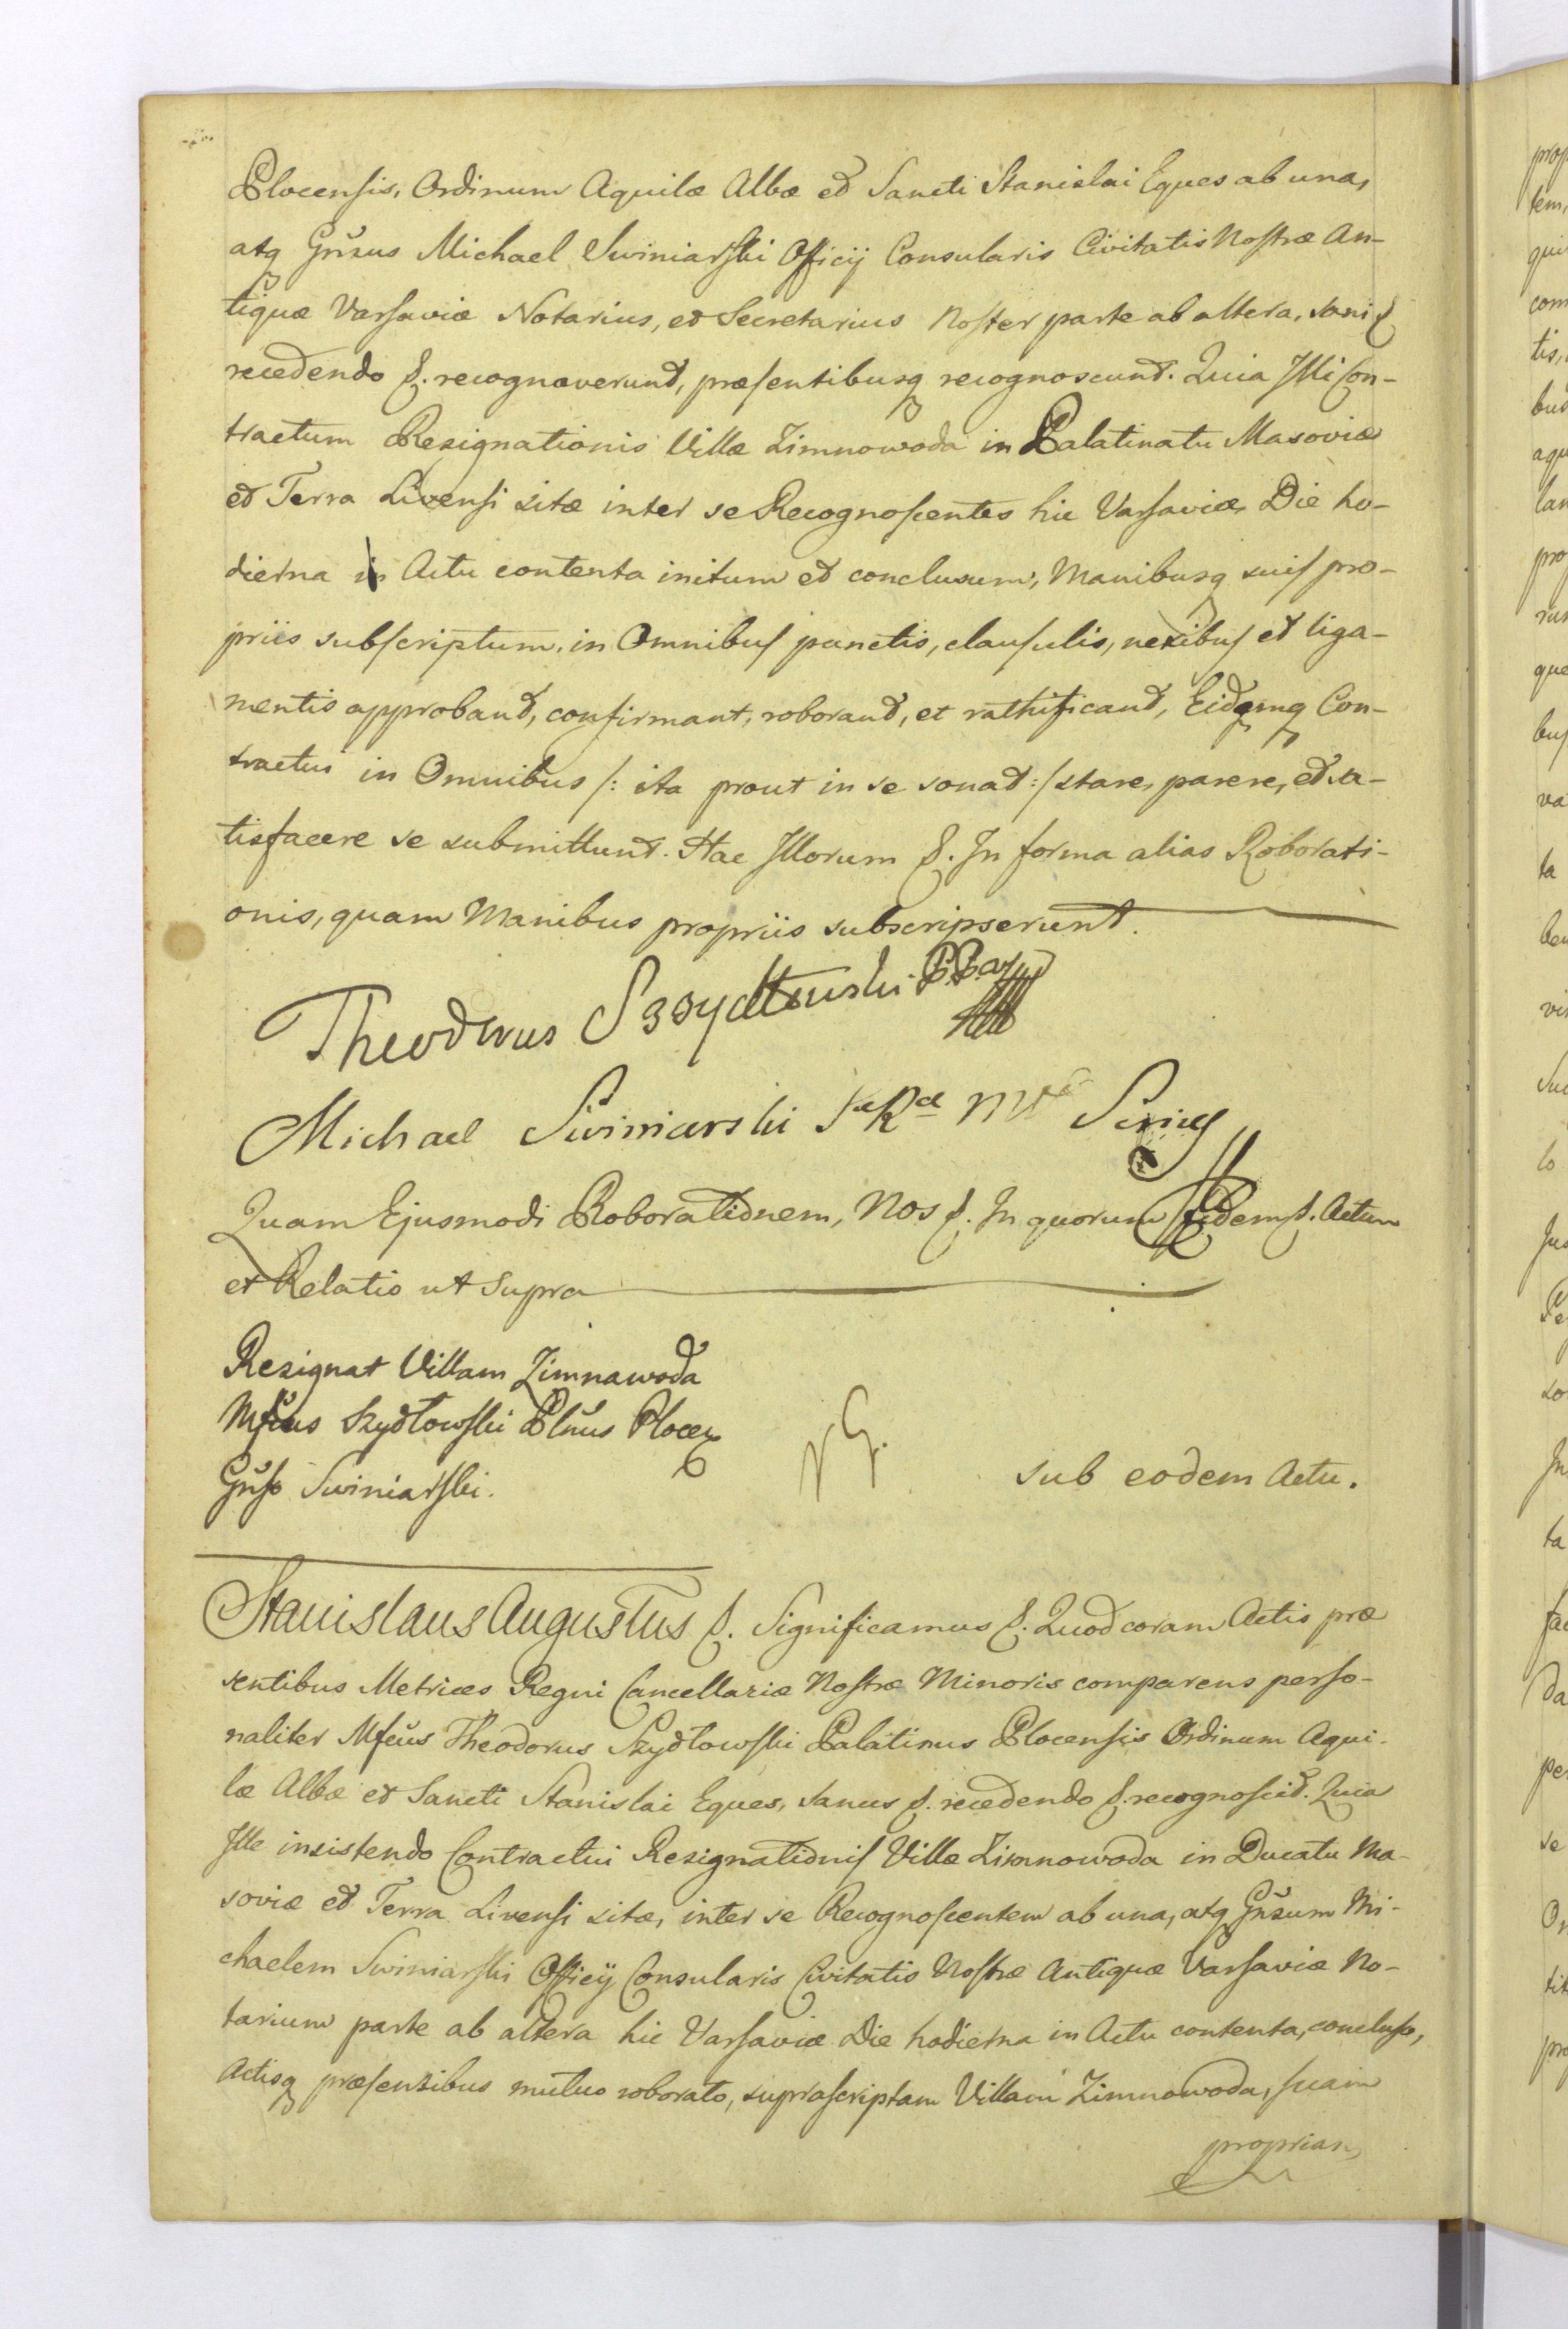 Plocensis, Ordinum Aquilæ Albæ et Sancti Stanislai Eques ab una,
atq Gnsus Michael Swiniarski Officij Consularis Civitatis Nostræ An-
tiquæ Varsaviæ Notarius, et Secretarius Noster parte ab altera, sani
recedendo &. recognoverunt, præsentibusq recognoscunt. Quia Illi Con-
tractum Resignationis Villæ Zimnowoda in Palatinatu Masoviæ
et Terra Livensi sitæ inter se Recognoscentes hic Varsaviæ, Die ho-
dierna in Actu contenta initum et conclusum, Manibusq suis pro-
priis subscriptum, in Omnibus punctis, clausulis, nexibus et liga-
mentis approbant, confirmant, roborant, et rathificant, Eidemq Con-
tractui in Omnibus /: ita prout in se sonat :/ stare, parere, et sa-
tisfacere se submittunt. Hac Illorum &. In forma alias Roborati-
onis, quam Manibus propriis subscripserunt.
Theodorus Szydłowski
Michael Swiniarski
Quam Ejusmodi Roborationem, Nos &. In quorum Fidem &. Actum
et Relatio ut Supra
Resignat Villam Zimnawoda
Mfcus Szydłowski Plnus Plocen
Gnso Swiniarski.
sub eodem Actu.
Stanislaus Augustus &. Significamus &. Quod coram Actis præ
sentibus Metrices Regni Cancellariæ Nostræ Minoris comparens perso-
naliter Mfcus Theodorus Szydłowski Palatinus Plocensis Ordinum Aqui-
læ Albæ et Sancti Stanislai Eques, sanus &. recedendo &. recognoscit. Quia
Ille insistendo Contractui Resignationis Villæ Zimnowoda in Ducatu Ma-
soviæ et Terra Livensi sitæ, inter se Recognoscentem ab una, atq Gnsum Mi-
chaelem Swiniarski Officij Consularis Civitatis Nostræ Antiquæ Varsaviæ No-
tarium parte ab altera hic Varsaviæ Die hodierna in Actu contenta, concluso,
Actisq præsentibus mutuo roborato, suprascriptam Villam Zimnowoda, suam
propriam